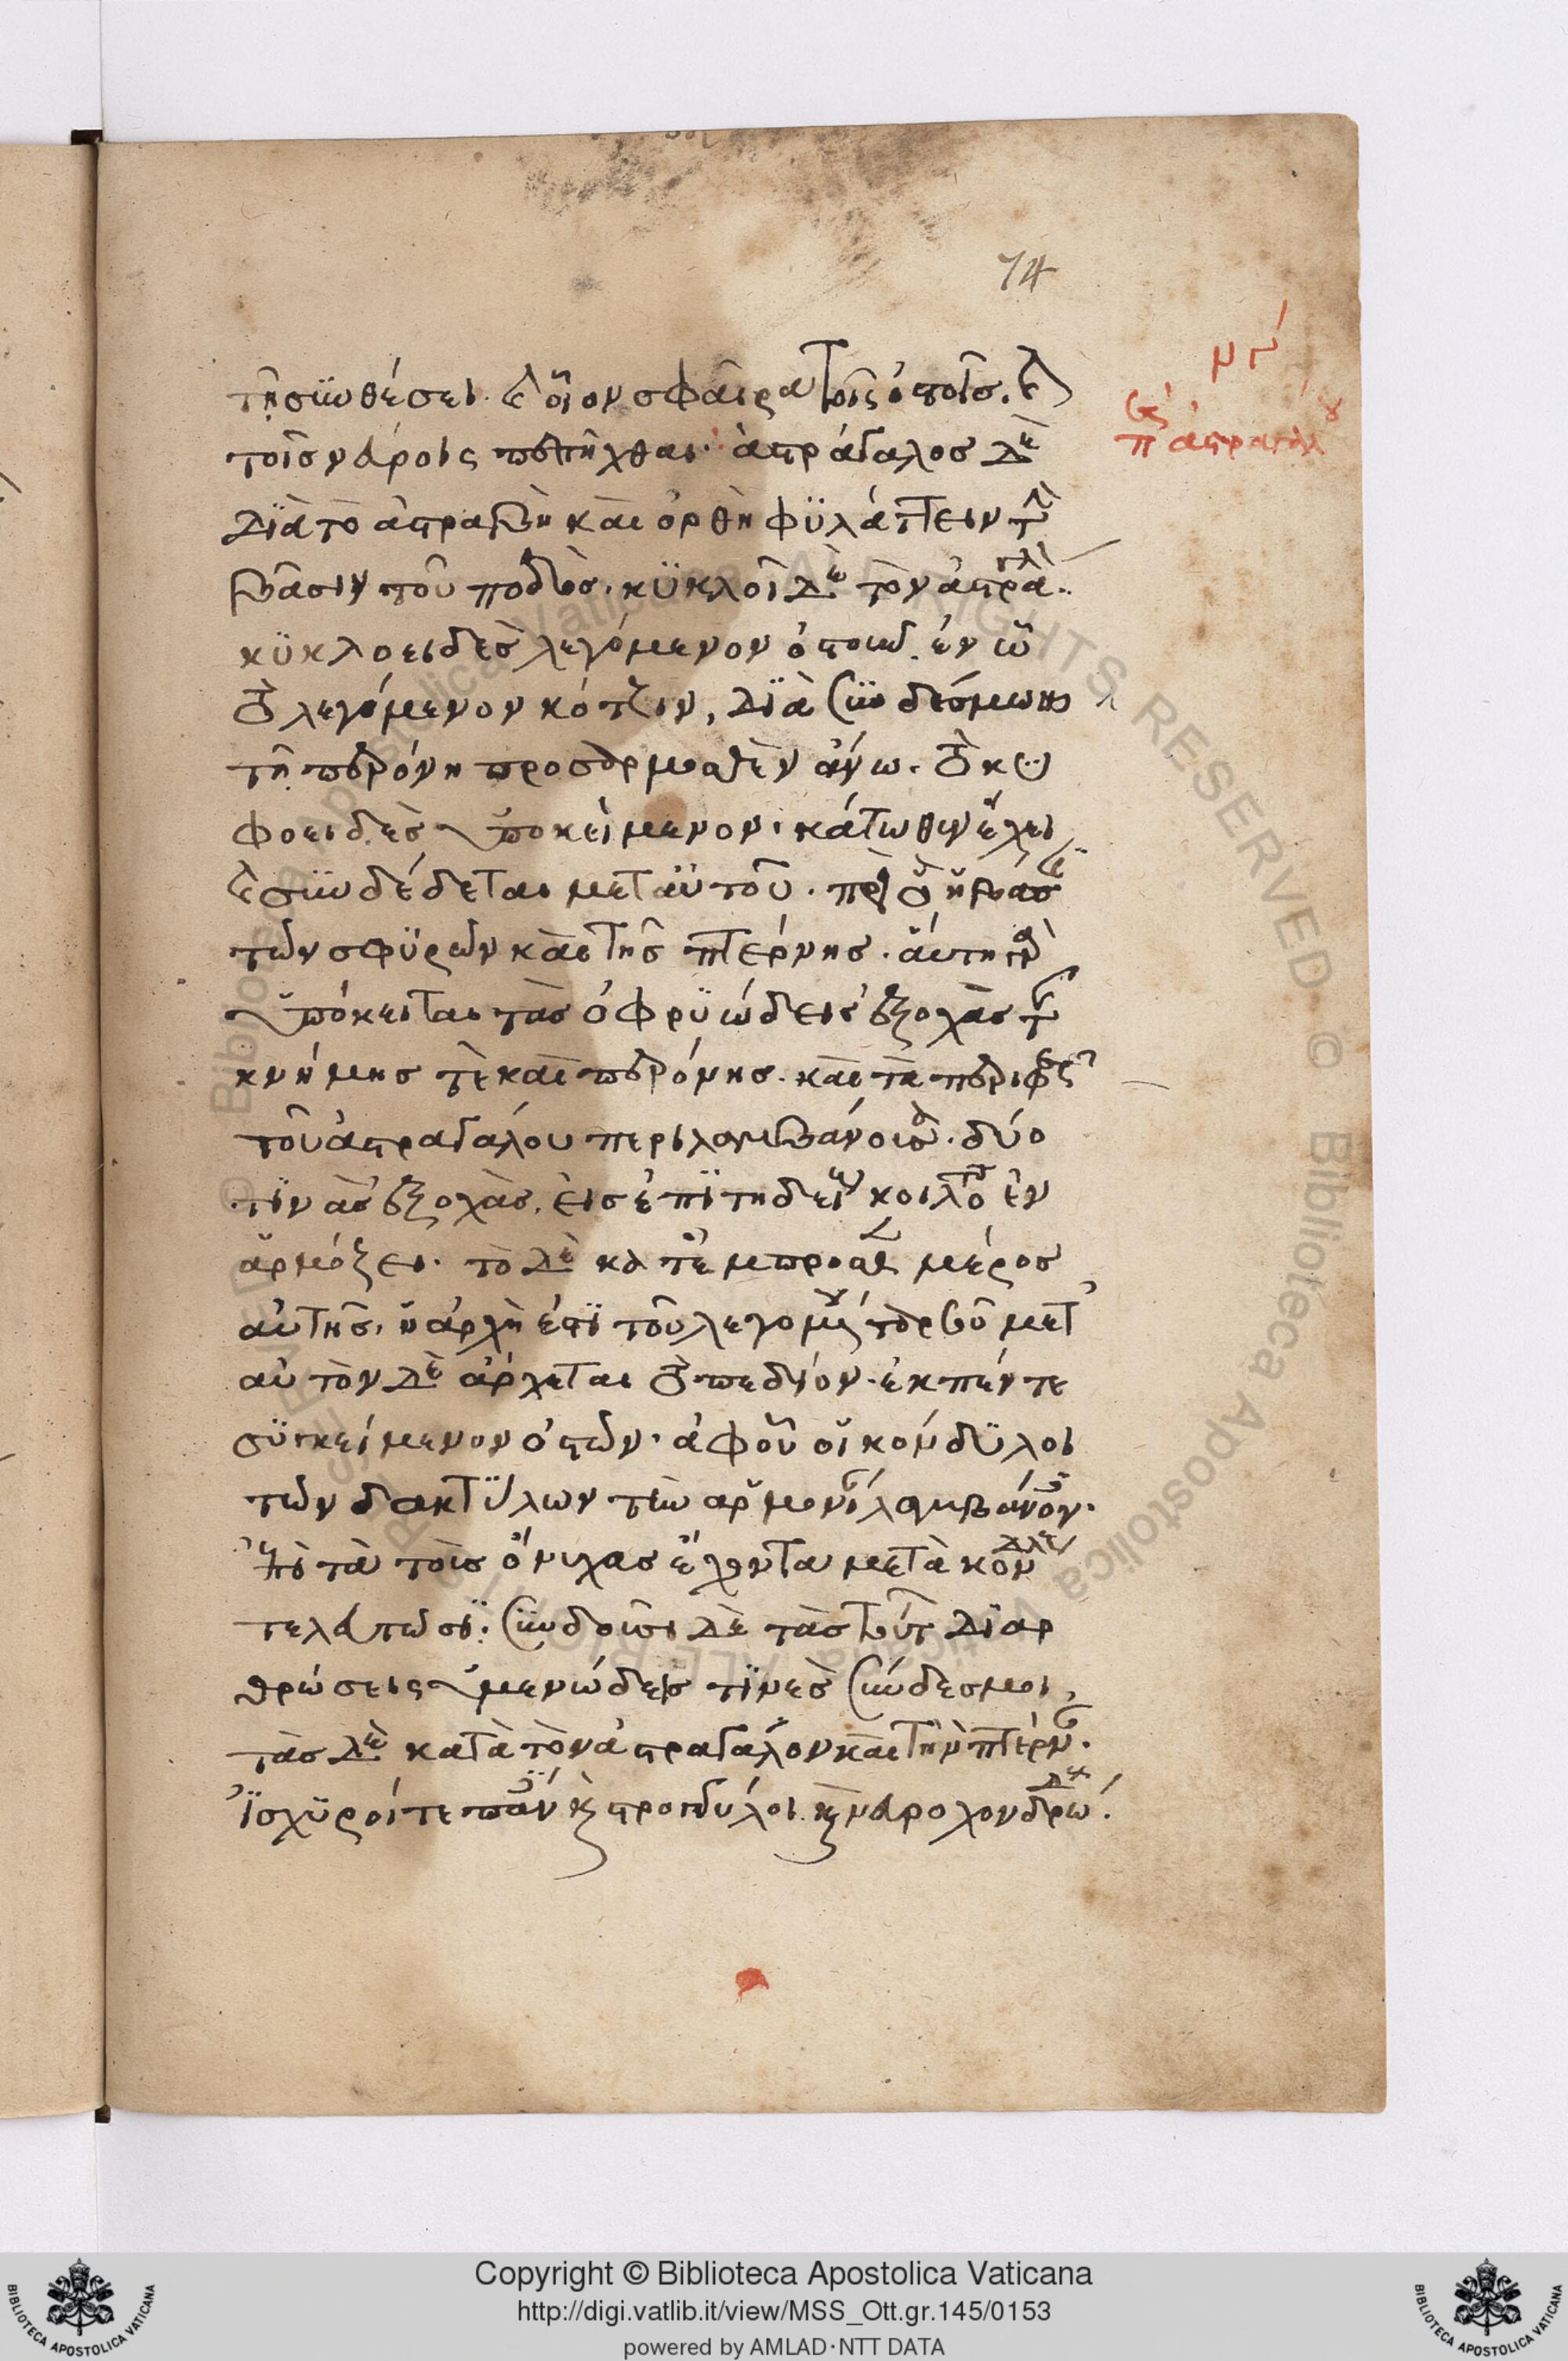 74
μγ´
περὶ ἀστραγάλου
τῆ συνθέσει. καὶ οἷον σφαῖρα τοῖς ὀστοῖς. καὶ
τοῖς νεύροις περιπῆχθαι· ἀστράγαλος δὲ
διὰ τὸ ἀστραβῆ καὶ ὀρθὴν φϋλάττειν τὴν
βᾶσιν τοῦ ποδὸς. κϋκλοῖ δὲ τὸν ἀστράγαλον
κϋκλοειδὲς λεγόμενον ὀστοῦν. ἐν ὧ
τὸ λεγόμενον κότζιν, διὰ συνδέσμων
τῆ περόνη προσηρμοσθὲν ἄνω. τὸ
φοειδὲς ὑποκείμενον· κάτωθεν ἔχει
καὶ συνδέδεται μετ αὐτοῦ. περὶ τὸ
τῶν σφϋρῶν καὶ τῆς πτέρνης. αὕτη γὰρ
ὑπόκειται τὰς ὀφρϋώδεις ἐξοχὰς τῆς
κνήμης τὲ καὶ περόνης. καὶ τὰ
τοῦ ἀστραγάλου περιλαμβάνουσα. δύο
τϊνὰς ἐξοχὰς, εἰς ἐπϊτηδείους κοιλότητας ἐν
αρμόζει. τὸ δὲ κατ ἔμπροσθεν μέρος
αὐτῆς, ἡ ἀρχὴ ἐστϊ τοῦ λεγομένου ταρσοῦ μετ
αὐτὸν δὲ ἄρχεται τὸ πεδίον. ἐκ πέντε
συγκείμενον ὀστῶν. ἀφ οὗ οἱ κονδϋλοι
τῶν δακτϋλων τὴν αρμονίαν λαμβάνουσιν.
εἶτα τοὺς ὄνυχας ἔχοντα μετὰ κονδύλους
τελευτῶσϊ. συνδοῦσι δὲ τὰς τούτων διαρ
θρώσεις ὑμενώδεις τϊνὲς σύνδεσμοι,
τὰς δὲ κατὰ τὸν ἀστραγάλον καὶ τὴν πτέρναν.
ἰσχϋροί τε πάνυ καὶ στρογγύλοι καὶ νευροχονδρώδεις.
Copyright © Biblioteca Apostolica Vaticana
http://digi.vatlib.it/view/MSS_Ott.gr.145/0153
powered by AMLAD·NTT DATA
BIBLIOTECA APOSTOLICA VATICANA
BIBLIOTECA APOSTOLICA VATICANA